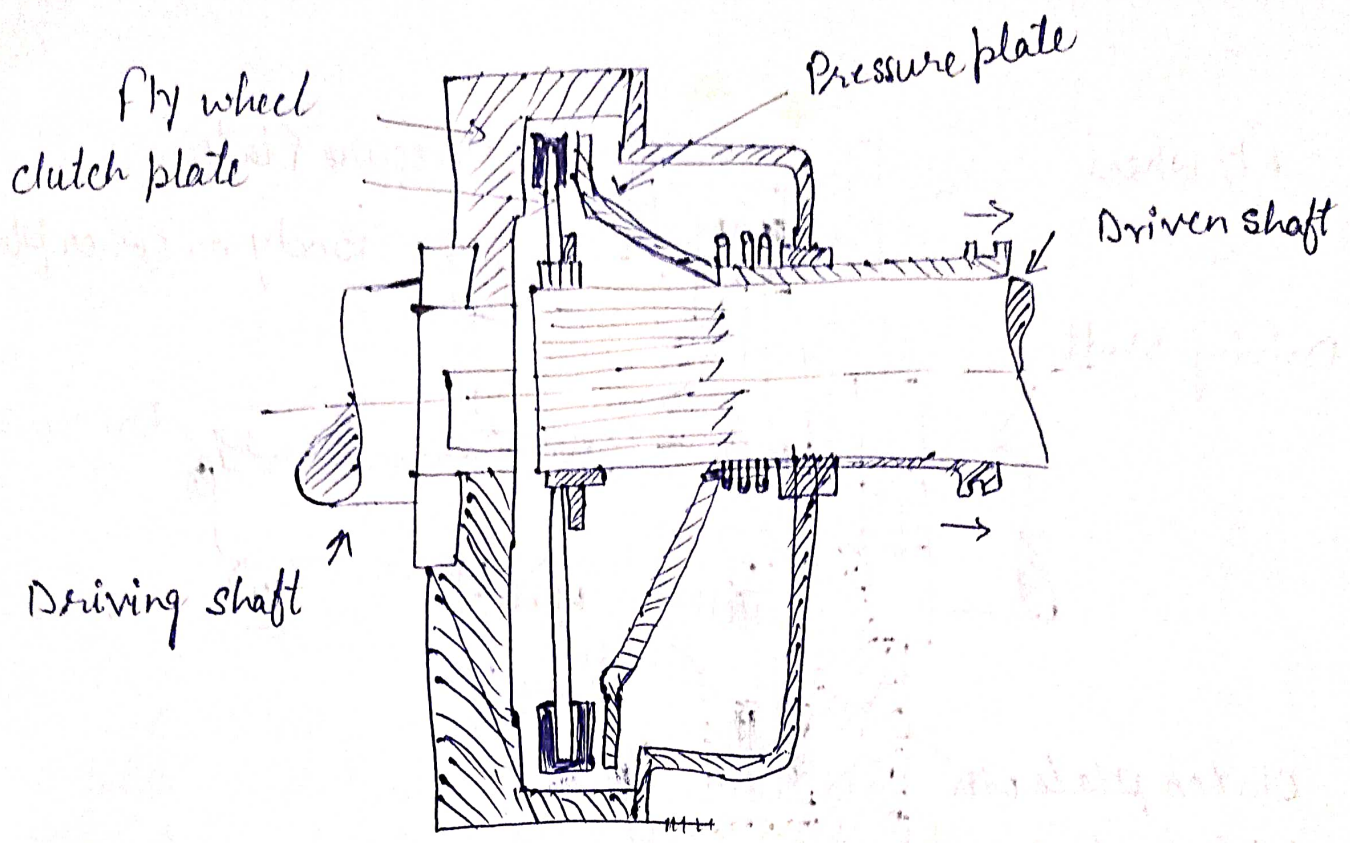 Fly wheel
clutch plate
Pressure plate
Driven shaft
Driving shaft